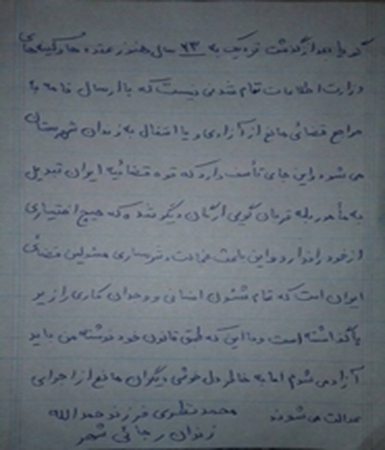 گویا بعد از گذشت نزدیک به ۲۳ سال هنوز عقده ها و کینه های
وزارت اطلاعات تمام شدنی نیست که با ارسال نامه به
مراجع قضائی مانع از آزادی و یا انتقال به زندان شهرستان
می شود و این جای تأسف دارد که قوه قضائیه ایران تبدیل
به مأمور بله قربان گوی ارگان دیگر شده که هیچ اختیاری
از خود را ندارد و این باعث خجالت و شرمساری مسئولین قضائی
ایران است که تمام شئون انسانی و وجدان کاری را زیر
پا گذاشته است و با این که طبق قانون خود نوشته من باید
آزاد می شدم اما به خاطر دل خوشی دیگران مانع از اجرای
عدالت می شوند محمد نظری فرزند حمدالله
زندان رجائی شهر